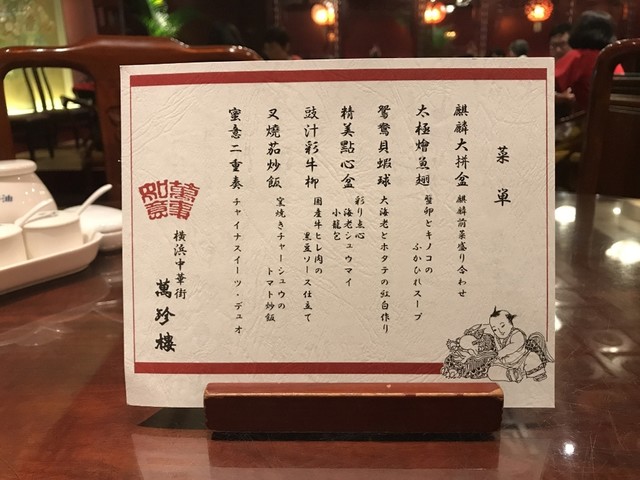 菜単
麒麟大拼盆
麒麟前菜盛り合わせ
太極燴魚翅
蟹卵とキノコの
ふかひれスープ
鴛鴦貝蝦球
大海老とホタテの紅白作り
精美點心盆
彩り点心
海老シュウマイ
小籠包
豉汁彩牛柳
国産牛ヒレ肉の
黒豆ソース仕立て
叉燒茄炒飯
窯焼きチャーシュウの
トマト炒飯
蜜意二重奏
チャイナスイーツ・デュオ
萬事
如意
横浜中華街
萬珍樓
油